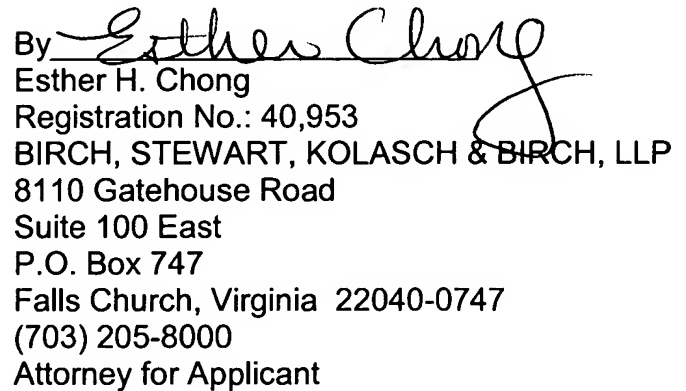 By Esther Chong
Esther H. Chong
Registration No.: 40,953
BIRCH, STEWART, KOLASCH & BIRCH, LLP
8110 Gatehouse Road
Suite 100 East
P.O. Box 747
Falls Church, Virginia 22040-0747
(703) 205-8000
Attorney for Applicant